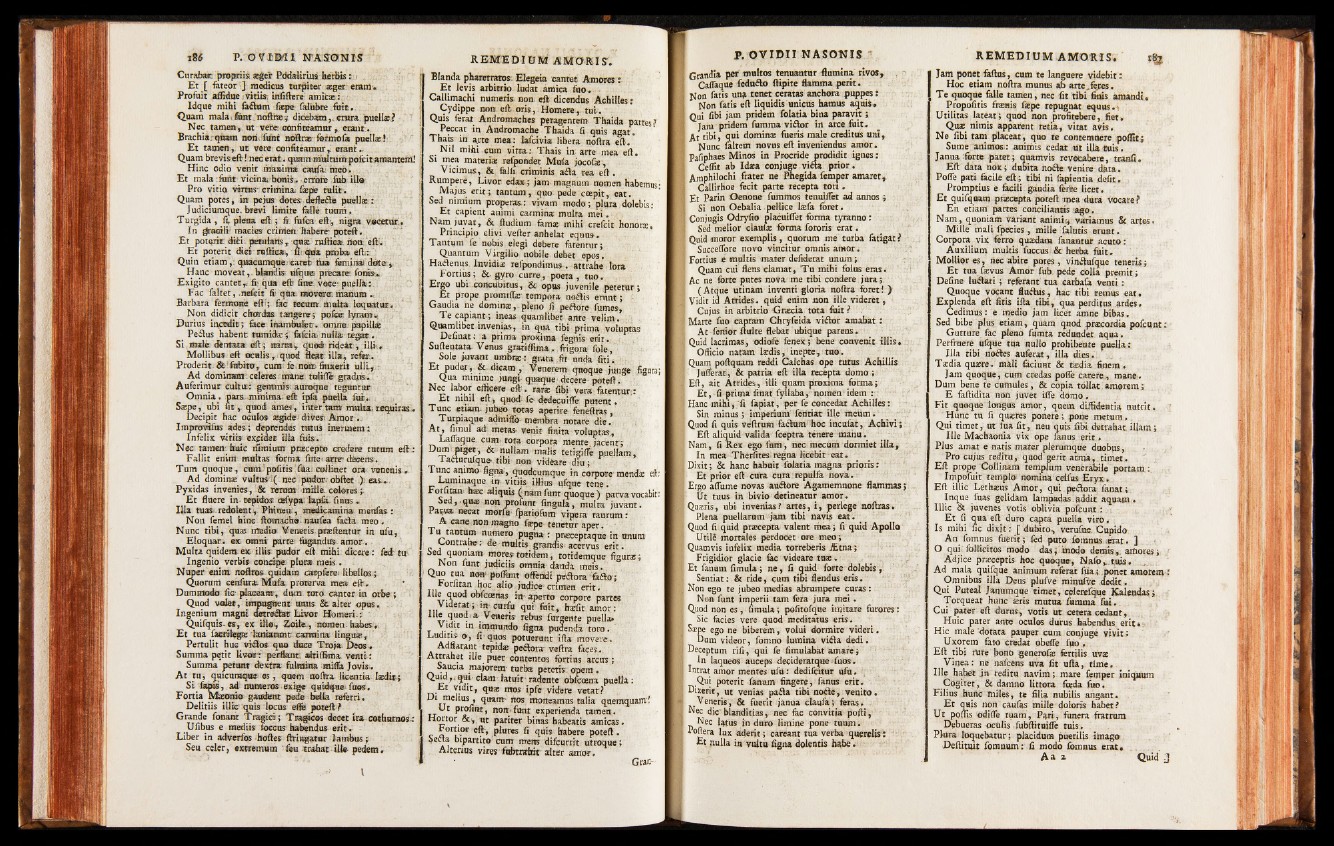 186 P. OVIDII NASONIS
Curabar propriis æger Podalirius herbis:
Et [ fateor ] medicus turpiter æger eram.
Profuit assidue vitiis insistere amicæ:
Idque mihi factum sæpe salubre fuit.
Quam mala sunt nostræ, dicebam, crura puellæ?
Nec tamen, ut vere confiteamur, erant.
Brachia quam non sunt nostræ formosa puellæ!
Et tamen, ut vere confiteamur, erant.
Quam brevis est! nec erat. quam multum poscit amantem!
Hinc odio venit maxima causa meo.
Et mala sunt vicina bonis. errore sub illo
Pro vitio virtus crimina sæpe tulit.
Quam potes, in pejus dotes deflecte puellæ:
Judiciumque brevi limite falle tuum.
Turgida, si plena est; si fusca est, nigra vocetur.
In gracili macies crimen habere potest.
Et poterit dici petulans, quæ rustica non est.
Et poterit dici rustica, si qua proba est.
Quin etiam, quacumque caret tua femina dote,
Hanc moveat, blandis usque precare sonis.
Exigito cantet, si qua est sine voce puella:
Fac saltet, nescit si qua movere manum.
Barbara sermone est; fac tecum multa loquatur.
Non didicit chordas tangere; posce lyram.
Durius incedit; face inambulet. omne papillæ
Pectus habent tumidæ; fascia nulla tegat.
Si male dentata est; narra, quod rideat, illi.
Mollibus est oculis, quod fleat illa, refer.
Proderit & subito, cum se non finxerit ulli,
Ad dominam celeres mane tulisse gradus.
Auferimur cultu: gemmis auroque teguntur
Omnia. pars minima est ipsa puella sui.
Sæpe, ubi sit, quod ames, inter tam multa requiras.
Decipit hac oculos ægide dives Amor.
Improvisus ades; deprendes tutus inermem:
Infelix vitiis excidet illa suis.
Nec tamen huic nimium præcepto credere tutum est:
Fallit enim multos forma sine arte decens.
Tum quoque, cum positis sua collinet ora venenis.
Ad dominæ vultus ( nec pudor obstet ) eas.
Pyxidas invenies, & rerum mille colores;
Et fluere in tepidos œsypa lapsa sinus.
Illa tuas redolent, Phineu, medicamina mensas:
Non semel hinc stomacho nausea facta meo.
Nunc tibi, quæ medio Veneris præstentur in usu,
Eloquar. ex omni parte fugandus amor.
Multa quidem ex illis pudor est mihi dicere: sed tu
Ingenio verbis concipe plura meis.
Nuper enim nostros quidam carpsere libellos;
Quorum censura Musa proterva mea est.
Dummodo sic placeam, dum toto canter in orbe;
Quod volet, impugnent unus & alter opus.
Ingenium magni detrectat Livor Homeri:
Quisquis es, ex illo, Zoile, nomen habes.
Et tua sacrilegæ laniarunt carmina linguæ,
Pertulit huc victos quo duce Troja Deos.
Summa petit livor: perflant altissima venti:
Summa petunt dextra fulmina missa Jovis.
At tu, quicumque es, quem nostra licentia lædit;
Si sapis, ad numeros exige quidque suos.
Fortia Mæonio gaudent pede bella referri.
Delitiis illic quis locus esse potest?
Grande sonant Tragici; Tragicos decet ira cothurnos:
Usibus e mediis soccus habendus erit.
Liber in adversos hostes stringatur iambus;
Seu celer, extremum seu trahat ille pedem.
REMEDIUM AMORIS.
Blanda pharetratos Elegeia cantet Amores:
Et levis arbitrio ludat amica suo.
Callimachi numeris non est dicendus Achilles:
Cydippe non est oris, Homere, tui.
Quis ferat Andromaches peragentem Thaida partes?
Peccat in Andromache Thaida si quis agat.
Thais in arte mea: lascivia libera nostra est.
Nil mihi cum vitta: Thais in arte mea est.
Si mea materiæ respondet Musa jocosæ,
Vicimus, & falsi criminis acta rea est.
Rumpere, Livor edax; jam magnum nomen habemus:
Majus erit; tantum, quo pede cœpit, eat.
Sed nimium properas: vivam modo; plura dolebis:
Et capient animi carmina multa mei.
Nam juvat, & studium famæ mihi crescit honoræ.
Principio clivi vester anhelat equus.
Tantum se nobis elegi debere fatentur;
Quantum Virgilio nobile debet epos.
Hactenus Invidiæ respondimus. attrahe lora
Fortius; & gyro curre, poeta, tuo.
Ergo ubi concubitus, & opus juvenile petetur;
Et prope promissæ tempora noctis erunt;
Gaudia ne dominæ, pleno si pectore sumes,
Te capiant; ineas quamlibet ante velim.
Quamlibet invenias, in qua tibi prima voluptas
Desinat: a prima proxima segnis erit.
Sustentata Venus gratissima. frigora sole,
Sole juvant umbræ: grata fit unda siti.
Et pudet, & dicam, Venerem quoque junge figura;
Qua minime jungi quaque decere potest.
Nec labor efficere est. raræ sibi vera fatentur:
Et nihil est, quod se dedecuisse putent.
Tunc etiam jubeo totas aperire fenestras,
Turpiaque admisso membra notare die.
At, simul ad metas venit finita voluptas,
Lassaque cum tota corpora mente jacent;
Dum piget, & nullam malis tetigisse puellam,
Tacturusque tibi non videare diu;
Tunc animo signa, quodcumque in corpore mendæ est:
Luminaque in vitiis illius usque tene.
Forsitan hæc aliquis (nam sunt quoque) parva vocabit:
Sed, quæ non prosunt singula, multa juvant.
Parva necat morsu spatiosum vipera taurum:
A cane non magno sæpe tenetur aper.
Tu tantum numero pugna: præceptaque in unum
Contrahe: de multis grandis acervus erit.
Sed quoniam mores totidem, totidemque figuræ;
Non sunt judiciis omnia danda meis.
Quo tua non possunt offendi pectora facto;
Forsitan hoc alio judice crimen erit.
Ille quod obscœnas in aperto corpore partes
Viderat; in cursu qui fuit, hæsit amor:
Ille quod a Veneris rebus surgente puella
Vidit in immundo signa pudenda toro.
Luditis o, si quos potuerunt ista movere.
Adflarant tepidæ pectora vestra faces.
Attrahet ille puer contentos fortius arcus;
Saucia majorem turba petetis opem.
Quid, qui clam latuit radente obscœna puella:
Et vidit, quæ mos ipse videre vetat?
Di melius, quam nos moneamus talia quemquam!
Ut prosint, non sunt experienda tamen.
Hortor &, ut pariter binas habeatis amicas.
Fortior est, plures si quis habere potest.
Secta bipartito cum mens discurrit utroque;
Alterius vires subtrahit alter amor.
Gran-
P. OVIDII NASONIS
Grandia per multos tenuantur flumina rivos,
Cassaque seducto stipite flamma perit.
Non satis una tenet ceratas anchora puppes:
Non satis est liquidis unicus hamus aquis.
Qui sibi jam pridem solatia bina paravit;
Jam pridem summa victor in arce fuit.
At tibi, qui dominæ fueris male creditus uni,
Nunc saltem novus est inveniendus amor.
Pasiphaes Minos in Procride prodidit ignes:
Cessit ab Idæa conjuge victa prior.
Amphilochi frater ne Phegida semper amaret,
Callirhoe fecit parte recepta tori.
Et Parin Oenone summos tenuisset ad annos;
Si non Oebalia pellice læsa foret.
Conjugis Odrysio placuisset forma tyranno:
Sed melior clausæ forma sororis erat.
Quid moror exemplis, quorum me turba fatigat?
Successore novo vincitur omnis amor.
Fortius e multis mater desiderat unum;
Quam cui flens clamat, Tu mihi solus eras.
Ac ne forte putes nova me tibi condere jura;
( Atque utinam inventi gloria nostra foret! )
Vidit id Atrides. quid enim non ille videret,
Cujus in arbitrio Græcia tota fuit?
Marte suo captam Chryseida victor amabat:
At senior stulte flebat ubique parens.
Quid lacrimas, odiose senex; bene convenit illis.
Officio natam lædis, inepte, tuo.
Quam postquam reddi Calchas ope tutus Achillis
Jusserat, & patria est illa recepta domo;
Est, ait Atrides, illi quam proxima forma;
Et, si prima sinat syllaba, nomen idem:
Hanc mihi, si sapiat, per se concedat Achilles:
Sin minus; imperium sentiat ille meum.
Quod si quis vestrum factum hoc incusat, Achivi;
Est aliquid valida sceptra tenere manu.
Nam, si Rex ego sum, nec mecum dormiet illa,
In mea Thersites regna licebit eat.
Dixit; & hanc habuit solatia magna prioris:
Et prior est cura cura repulsa nova.
Ergo assume novas auctore Agamemnone flammas;
Ut tuus in bivio detineatur amor.
Quæris, ubi invenias? artes, i, perlege nostras.
Plena puellarum jam tibi navis eat.
Quod si quid præcepta valent mea; si quid Apollo
Utile mortales perdocet ore meo;
Quamvis infelix media torreberis Ætna;
Frigidior glacie fac videare tuæ.
Et sanum simula; ne, si quid forte dolebis,
Sentiat: & ride, cum tibi flendus eris.
Non ego te jubeo medias abrumpere curas:
Non sunt imperii tam fera jura mei.
Quod non es, simula; positosque imitare furores:
Sic facies vere quod meditatus eris.
Sæpe ego ne biberem, volui dormire videri.
Dum videor, somno lumina victa dedi.
Deceptum risi, qui se simulabat amare;
In laqueos auceps decideratque suos.
Intrat amor mentes usu: dediscitur usu.
Qui poterit sanum fingere, sanus erit.
Dixerit, ut venias pacta tibi nocte, venito.
Veneris, & fuerit janua clausa; feras.
Nec dic blanditias, nec fac convitia posti,
Nec latus in duro limine pone tuum.
Postera lux aderit; careant tua verba querelis:
Et nulla in vultu signa dolentis habe.
REMEDIUM AMORIS. 187
Jam ponet fastus, cum te languere videbit:
Hoc etiam nostra munus ab arte feres.
Te quoque falle tamen, nec sit tibi finis amandi.
Propositis frænis sæpe repugnat equus.
Utilitas lateat; quod non profitebere, fiet.
Quæ nimis apparent retia, vitat avis.
Ne sibi tam placeat, quo te contemnere possit;
Sume animos: animis cedat ut illa tuis.
Janua forte patet; quamvis revocabere, transi.
Est data nox; dubita nocte venire data.
Posse pati facile est; tibi ni sapientia desit.
Promptius e facili gaudia ferre licet.
Et quisquam præcepta potest mea dura vocare?
En etiam partes conciliantis ago.
Nam, quoniam variant animi, variamus & artes.
Mille mali species, mille salutis erunt.
Corpora vix ferro quædam sanantur acuto:
Auxilium multis succus & herba fuit.
Mollior es, nec abire potes, vinctusque teneris;
Et tua sævus Amor sub pede colla premit;
Desine luctari; referant tua carbasa venti:
Quoque vocant fluctus, hac tibi remus eat.
Explenda est sitis ista tibi, qua perditus ardes.
Cedimus: e medio jam licet amne bibas.
Sed bibe plus etiam, quam quod præcordia poscunt:
Gutture fac pleno sumta redundet aqua.
Perfruere usque tua nullo prohibente puella:
Illa tibi noctes auferat, illa dies.
Tædia quære. mali faciunt & tædia finem.
Jam quoque, cum credas posse carere, mane.
Dum bene te cumules, & copia tollat amorem;
E fastidita non juvet isse domo.
Fit quoque longus amor, quem diffidentia nutrit.
Hunc tu si quæres ponere; pone metum.
Qui timet, ut sua sit, neu quis sibi detrahat illam;
Ille Machaonia vix ope sanus erit.
Plus amat e natis mater plerumque duobus,
Pro cujus reditu, quod gerit arma, timet.
Est prope Collinam templum venerabile portam:
Imposuit templo nomina celsus Eryx.
Est illic Lethæus Amor, qui pectora sanat;
Inque suas gelidam lampadas addit aquam.
Illic & juvenes votis oblivia poscunt:
Et si qua est duro capta puella viro.
Is mihi sic dixit; [ dubito, verusne Cupido
An somnus fuerit; sed puto somnus erat. ]
O qui sollicitos modo das, modo demis, amores;
Adjice præceptis hoc quoque, Naso, tuis.
Ad mala quisque animum referat sua; ponet amorem:
Omnibus illa Deus plusve minusve dedit.
Qui Puteal Janumque timet, celeresque Kalendas;
Torqueat hunc æris mutua summa sui.
Cui pater est durus, votis ut cetera cedant,
Huic pater ante oculos durus habendus erit.
Hic male dotata pauper cum conjuge vivit:
Uxorem fato credat obesse suo.
Est tibi rure bono generosæ fertilis uvæ
Vinea: ne nascens uva sit usta, time.
Ille habet in reditu navim; mare semper iniquum
Cogitet, & damno littora fœda suo.
Filius hunc miles, te filia nubilis angant.
Et quis non causas mille doloris habet?
Ut possis odisse tuam, Pari, funera fratrum
Debueras oculis substituisse tuis.
Plura loquebatur; placidum puerilis imago
Destituit somnum: si modo somnus erat.
A a 2 Quid